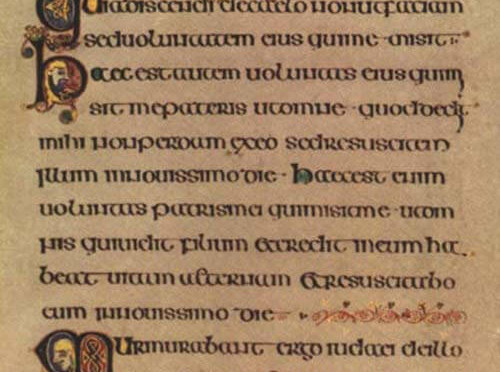 Quia discendi decaelo nonutfaciam
seduoluntatem eius quime misit
haec estautem uoluntas eius quim
sit mepatris utomne quoddedit
mihi nonperdam exeo sedresuscitem
illum innouissimo die haecest enim
uoluntas patrismei quimisitme utom
nis quiuidit filium &credit ineum ha
beat uitam aeternam &resuscitabo
eum innouissimo die
Murmurabant ergo iudaei deillo